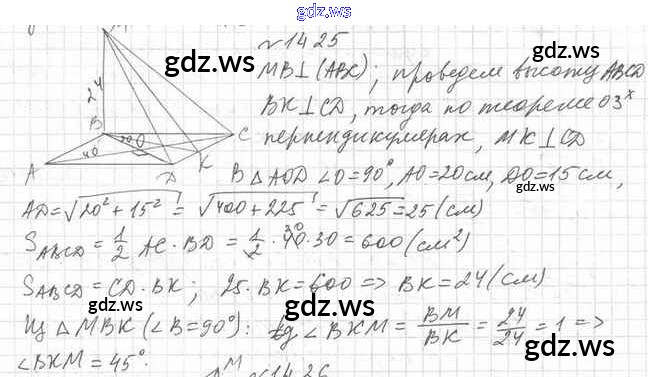 gdz.ws
№1425
gdz.ws gdz.ws
MB⊥(ABC); проведем высоту ABCD
24
BK⊥CD, тогда по теореме о 3х
B O C
перпендикулярах, MK⊥CD
40 30
A D K
В ΔAOD ∠O=90°, AO=20см, DO=15см,
gdz.ws gdz.ws
AD=√20²+15² = √400+225 = √625=25(см)
S ABCD = 1/2 AC·BD = 1/2·40·30=600(см²)
S ABCD = CD·BK; 25·BK=600 => BK=24(см)
gdz.ws gdz.ws
Из ΔMBK(∠B=90°): tg∠BKM = BM/BK = 24/24 = 1 =>
gdz.ws
∠BKM=45°.
M №1426